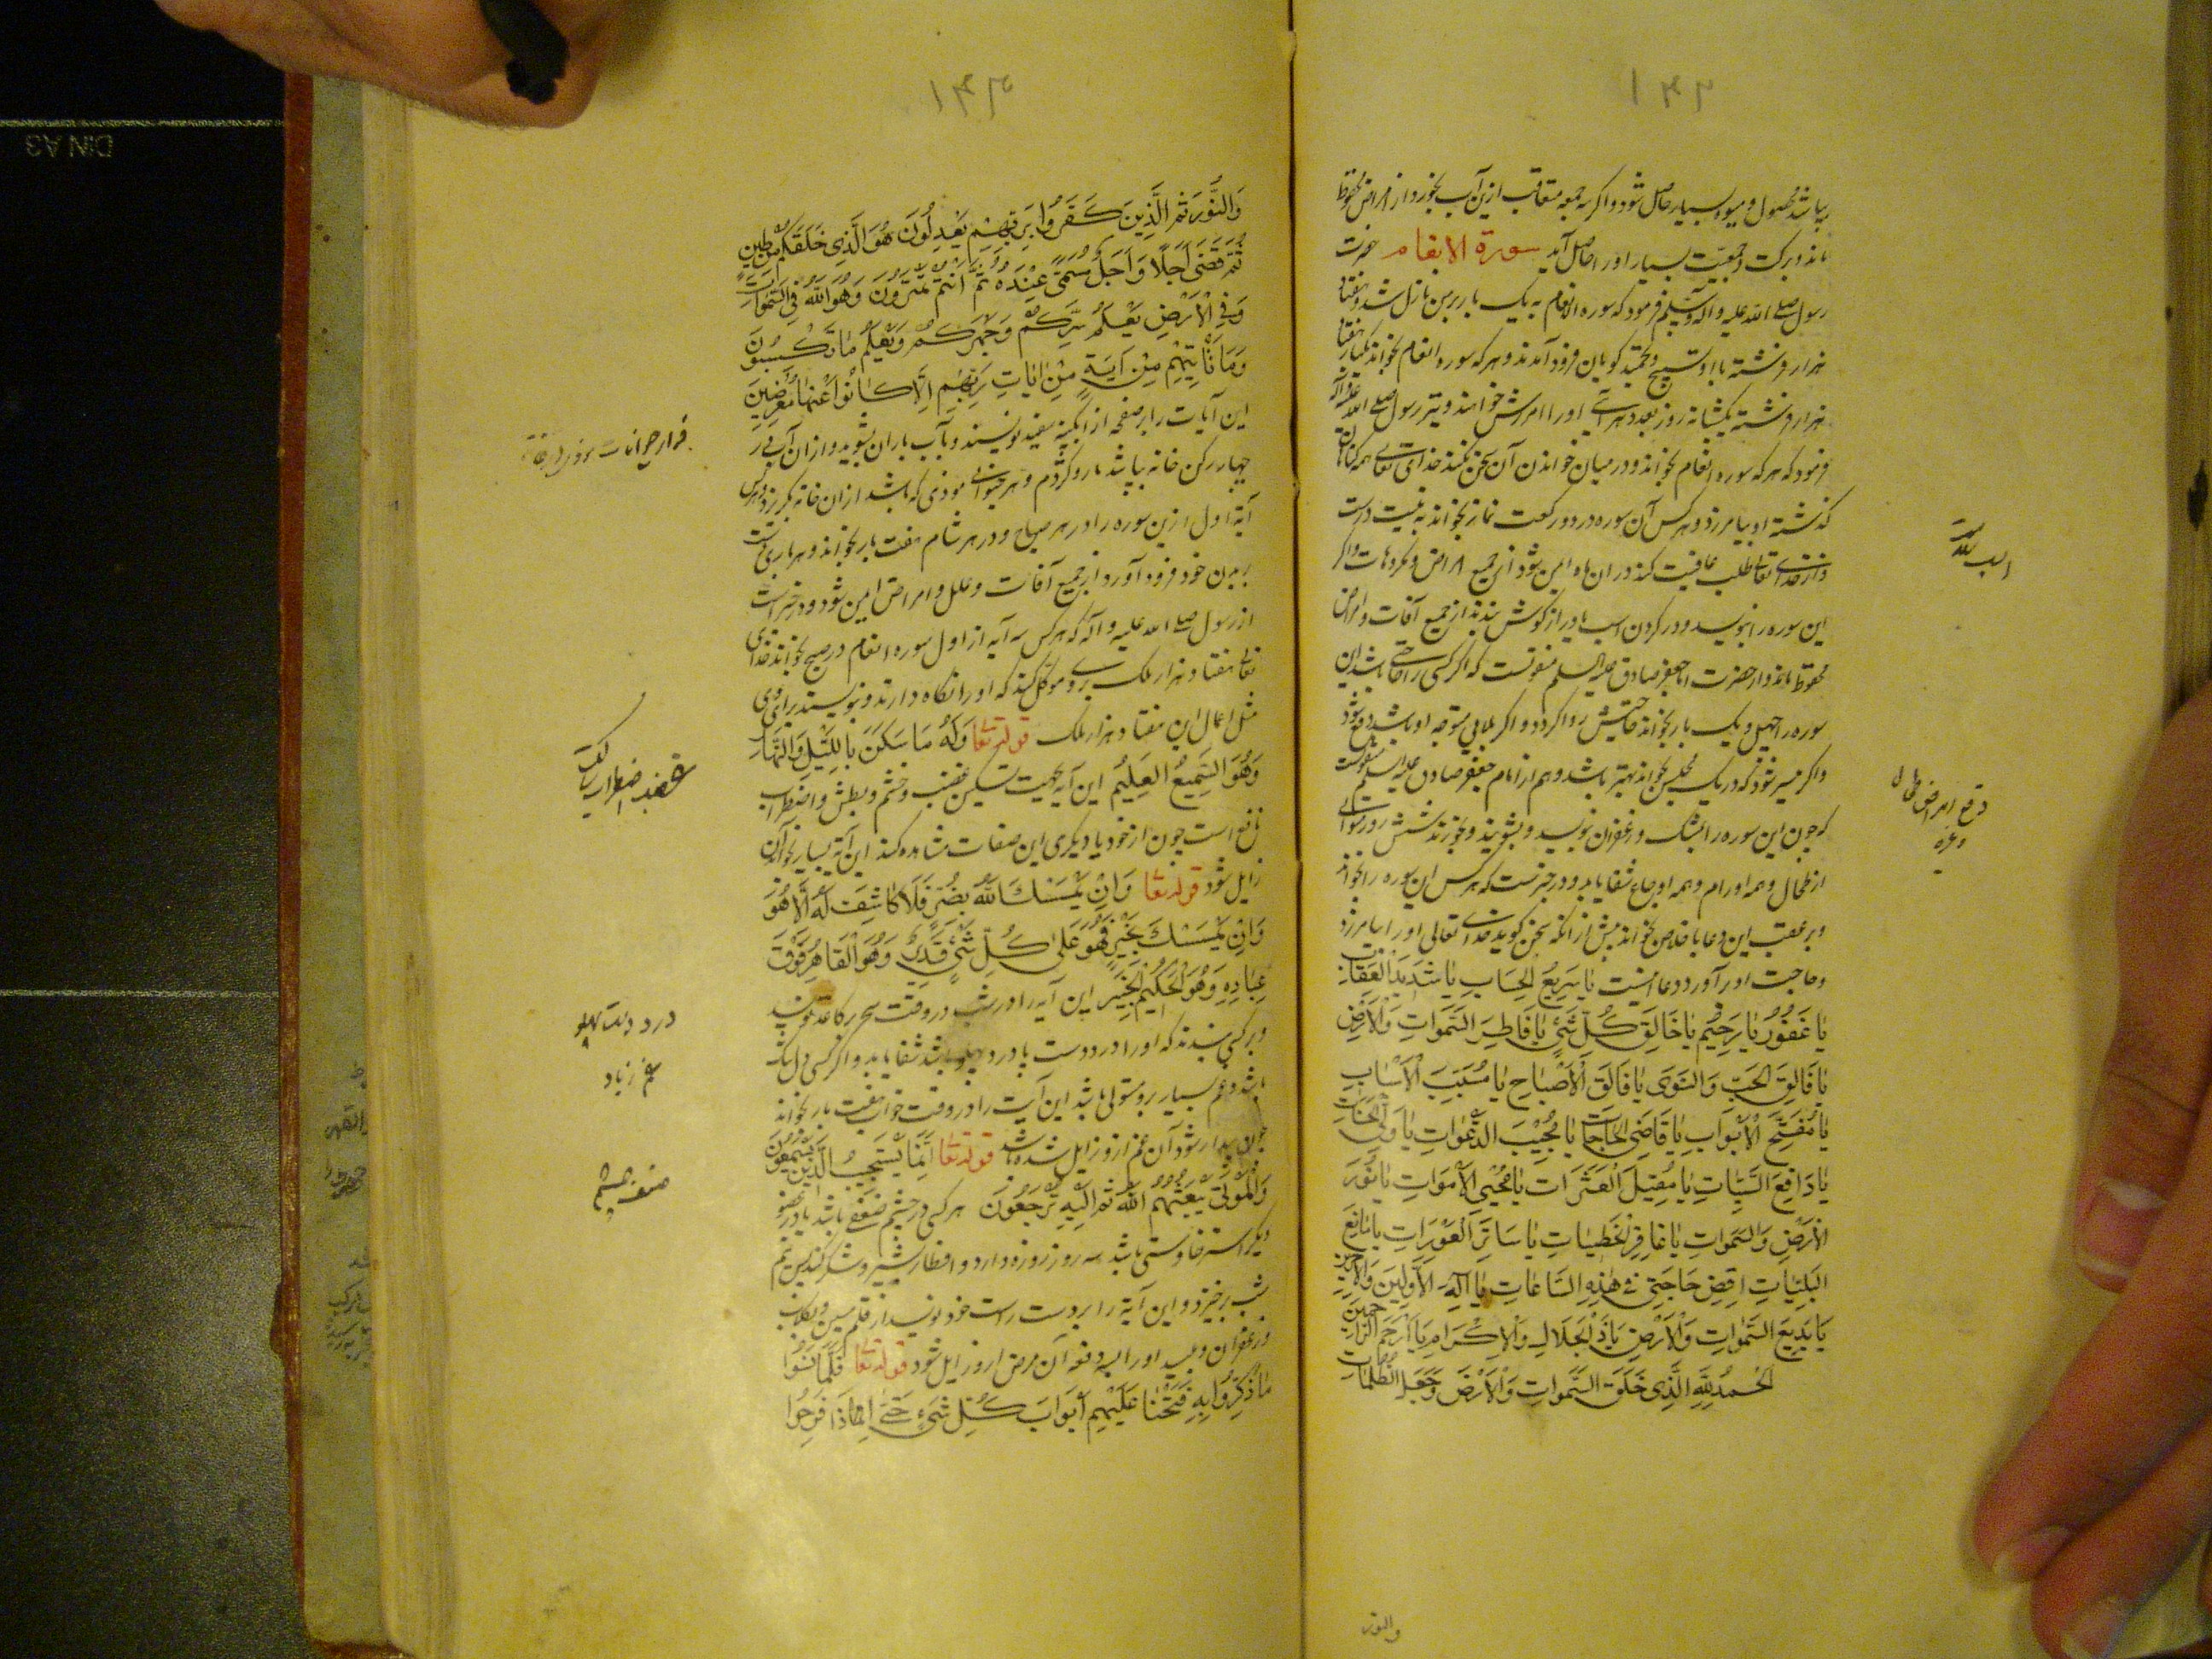 ۱۴۲
بپاشد محصول و میوه بسیار حاصل شود و اگر سه جمعه متعاقب ازین آب بخورد از امراض محفوظ
ماند و برکت و جمعیت بسیار او را حاصل آید سورة الانعام حضرت
رسول صلی الله علیه و آله و سلم فرمود که سوره الانعام به یک بار بر من نازل شد و هفتاد
هزار فرشته با او تسبیح و تحمید گویان فرود آمدند و هر که سوره انعام بخواند یکبار هفتاد
هزار فرشته یکشبانه روز بعدد هر آیتی او را آمرزش خواهند و نیز رسول صلی الله علیه و آله
فرمود که هر که سوره انعام بخواند و در میان خواندن آن سخن نکند خدای تعالی همه گناهان
گذشته او بیامرزد و هر کس آن سوره در دو رکعت نماز بخواند به نیت درست
و از خدای تعالی طلب عافیت کند در آن ماه ایمن شود از جمیع امراض و مکروهات و اگر
این سوره را بنویسد و در گردن اسب یا دراز گوش بندند از جمیع آفات و امراض
محفوظ ماند و از حضرت امام جعفر صادق علیه السلم منقولست که اگر کسی را حاجتی باشد این
سوره را چهل و یک بار بخواند حاجتش روا گردد و اگر بلایی متوجه او باشد دفع شود
و اگر میسر شود که در یک مجلس بخواند بهتر باشد و هم از امام جعفر صادق علیه السلم منقولست
که چون این سوره را بمشک و زعفران بنویسد و بشویند و بخورند شش روز متوالی
از طحال و همه اورام و همه اوجاع شفا یابد و در خبرست که هر کس این سوره را بخواند
و بر عقب این دعا باخلاص بخواند پیش از آنکه سخن گوید خدای تعالی او را بیامرزد
و حاجت او برآورد دعا اینست یا سَرِیعُ الحِسَابِ یا شَدِیدَ العِقَابِ
یا غَفُورُ یا رَحِیمُ یا خَالِقَ کُلِّ شَیْءٍ یا فَاطِرَ السَّمواتِ وَالْاَرْضِ
یا فَالِقَ الحَبِّ وَالنَّوَی یا فَالِقَ الْاَصْبَاحِ یا مُسَبِّبَ الْاَسْبَابِ
یا مُفَتِّحَ الْاَبْوَابِ یا قَاضِیَ الحَاجَاتِ یا مُجِیبَ الدَّعَوَاتِ یا وَلِیَّ الحَسَنَاتِ
یا دَافِعَ السَّیِّئَاتِ یا مُقِیلَ الْعَثَرَاتِ یا مُحْیِیَ الْاَمْوَاتِ یا نُورَ
الْاَرْضِ وَالسَّمواتِ یا غَافِرَ الْخَطِیئَاتِ یا سَاتِرَ الْعَوْرَاتِ یا مَانِعَ
البَلِیَّاتِ اِقْضِ حَاجَتِی فی هٰذِهِ السَّاعَاتِ یا اِلٰهَ الْاَوَّلِینَ وَالْآخِرِینَ
یا بَدِیعَ السَّمواتِ وَالْاَرْضِ یا ذَا الْجَلَالِ وَالْاِکْرَامِ یا اَرْحَمَ الرَّاحِمِینَ
اَلْحَمْدُ لِلّٰهِ الَّذِی خَلَقَ السَّمواتِ وَالْاَرْضَ وَجَعَلَ الظُّلُمَاتِ
دفع امراض طحال
و غیره
والنور
۱۴۳
وَالنُّورَ ثُمَّ الَّذِینَ کَفَرُوا بِرَبِّهِمْ یَعْدِلُونَ هُوَ الَّذِی خَلَقَکُمْ مِنْ طِینٍ
ثُمَّ قَضَی اَجَلًا وَاَجَلٌ مُسَمًّی عِنْدَهُ ثُمَّ اَنْتُمْ تَمْتَرُونَ وَهُوَ اللّٰهُ فِی السَّمٰوَاتِ
وَفِی الْاَرْضِ یَعْلَمُ سِرَّکُمْ وَجَهْرَکُمْ وَیَعْلَمُ مَا تَکْسِبُونَ
وَمَا تَأْتِیهِمْ مِنْ آیَةٍ مِنْ آیَاتِ رَبِّهِمْ اِلَّا کَانُوا عَنْهَا مُعْرِضِینَ
این آیات را بر صفحه از آبگینه سفید نویسند و بآب باران بشوید و از آن آب بر
چهار رکن خانه بپاشد مار و کژدم و هر حیوانی موذی که باشد از آن خانه بگریزد و هر کس
آیه اول ازین سوره را در هر صباح و در هر شام هفت بار بخواند و هر بار دست
بر بدن خود فرود آورد از جمیع آفات و علل و امراض ایمن شود و در خبر است
از رسول صلی الله علیه و آله که هر کس سه آیه از اول سوره انعام در صبح بخواند خدای
تعالی هفتاد هزار ملک بر وی موکل کند که او را نگاه دارند و نویسند برای وی
مثل اعمال این هفتاد هزار ملک قوله تعا وَلَهُ مَا سَکَنَ بِاللَّیْلِ وَالنَّهَارِ
وَهُوَ السَّمِیعُ الْعَلِیمُ این آیه بجهت تسکین غضب و خشم و بطش و اضطراب
نافع است چون از خود یا دیگری این صفات مشاهده کند این آیه بسیار بخواند آن
زایل شود قوله تعا وَاِنْ یَمْسَسْكَ اللّٰهُ بِضُرٍّ فَلَا کَاشِفَ لَهُ اِلَّا هُوَ
وَاِنْ یَمْسَسْكَ بِخَیْرٍ فَهُوَ عَلٰی کُلِّ شَیْءٍ قَدِیرٌ وَهُوَ الْقَاهِرُ فَوْقَ
عِبَادِهِ وَهُوَ الْحَکِیمُ الْخَبِیرُ این آیه را در شب در وقت سحر بر کاغذ نویسند
و بر کسی بندند که او را درد دست یا درد پهلو باشد شفا یابد و اگر کسی دل تنگ
باشد و غم بسیار بر و مستولی باشد این آیت را در وقت خواب هفت بار بخواند
چون بیدار شود آن غم ازو زایل شده باشد قوله تعا اِنَّمَا یَسْتَجِیبُ الَّذِینَ یَسْمَعُونَ
وَالْمَوْتَی یَبْعَثُهُمُ اللّٰهُ ثُمَّ اِلَیْهِ یُرْجَعُونَ هر کسی در چشم ضعفی باشد یا در عضو
دیگر استرخا و سستی باشد سه روز روزه دارد و افطار بشیر و شکر کند پس نیم
شب برخیزد و این آیة را بر دست راست خود نویسد از قلم مس و بگلاب
و زعفران و آن مرض ازو زایل شود قوله تعا فَلَمَّا نَسُوا
مَا ذُکِّرُوا بِهِ فَتَحْنَا عَلَیْهِمْ اَبْوَابَ کُلِّ شَیْءٍ حَتّٰی اِذَا فَرِحُوا
فرار حیوانات موذی از خانه
غضب و اضطراب
درد دست پهلو
غم زیاد
ضعف چشم
DIN A3